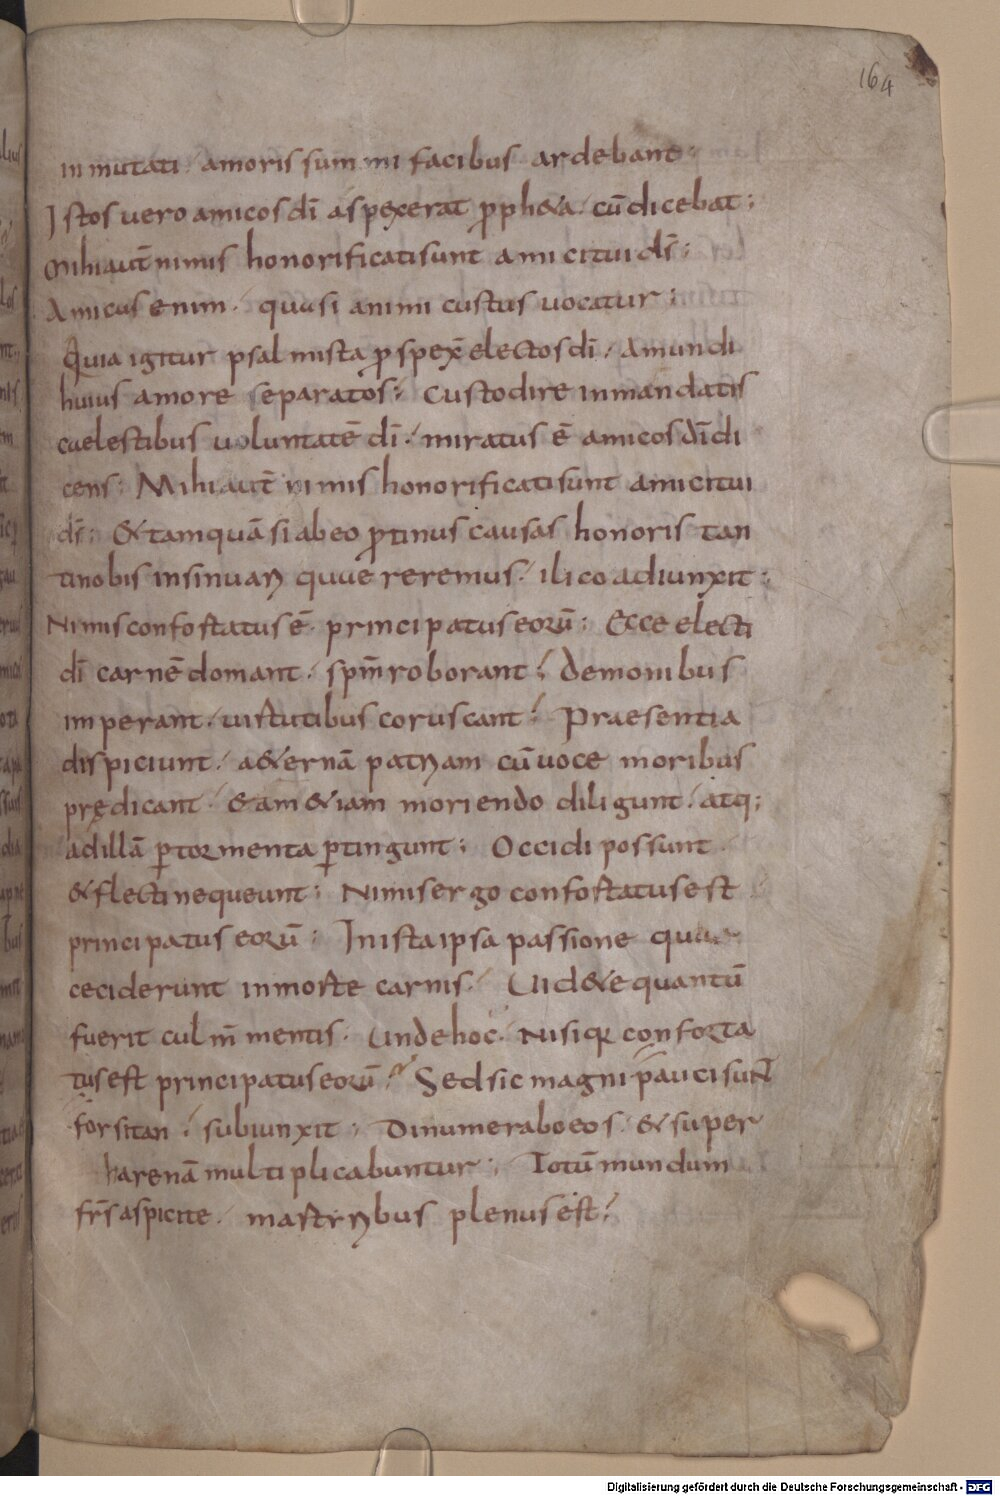 164
inmutati amoris summi facibus ardebant;
Istos vero amicos dī aspexerat ꝓph&a. cū dicebat;
Mihi aut̄ nimis honorificati sunt amici tui ds̄;
Amicus enim. quasi animi custus uocatur;
Quia igitur psalmista ꝓspex̄ electos dī. A mundi
huius amore separatos; Custodire in mandatis
caelestibus uoluntatē dī. miratus ē amicos dī di
cens; Mihi aut̄ nimis honorificati sunt amici tui
ds̄; & tamquā si ab eo ꝓtinus causas honoris tan
ti nobis insinuari quaereremus. ilico adiunxit;
Nimis confortatus ē principatus eorū; Ecce electi
dī carnē domant. sp̄m roborant; demonibus
imperant. uirtutibus coruscant; Praesentia
dispiciunt. a&ernā patriam cū uoce moribus
prędicant. eam &iam moriendo diligunt. atq;
ad illā ꝑ tormenta ꝑtingunt; Occidi possunt
& flecti nequeunt; Nimis ergo confortatus est
principatus eorū; In ista ipsa passione qua
ceciderunt in morte carnis. Uid&e quantū
fuerit culm̄ mentis. Unde hoc. Nisi qr conforta
tus est principatus eorū; Sed sic magni pauci sunt
forsitan; subiunxit; Dinumerabo eos. & super
harenā multiplicabuntur; Totū mundum
frs̄ aspicite. martyribus plenus est;
Digitalisierung gefördert durch die Deutsche Forschungsgemeinschaft - DFG